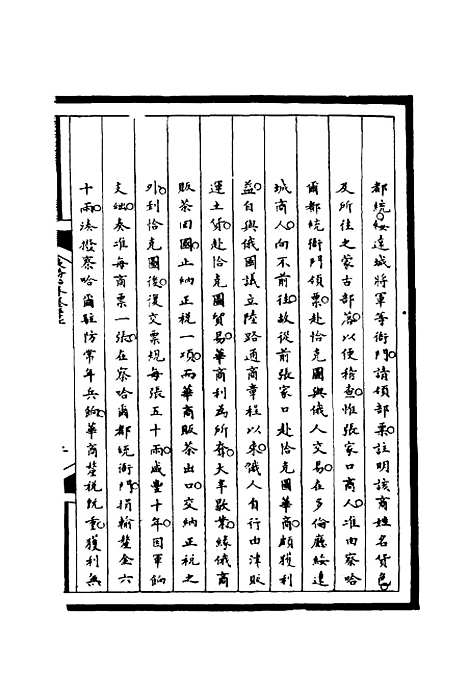 都統綏遠城將軍等衙門請領部票註明該商姓名貨色
及所往之蒙古部落以便稽查惟張家口商人准由察哈
爾都統衙門領票赴恰克圖與俄人交易在多倫廳綏遠
城商人向不前往故從前張家口赴恰克圖華商頗獲利
益自與俄國議立陸路通商章程以來俄人自行由津販
運土貨赴恰克圖貿易華商利為所奪大半歇業緣俄商
販茶回國止納正稅一項而華商販茶出口交納正稅之
外到恰克圖後復交票規每張五十兩咸豐十年因軍餉
支絀奏准每商票一張在察哈爾都統衙門捐輸釐金六
十兩湊撥察哈爾駐防常年兵餉華商釐稅旣重獲利無